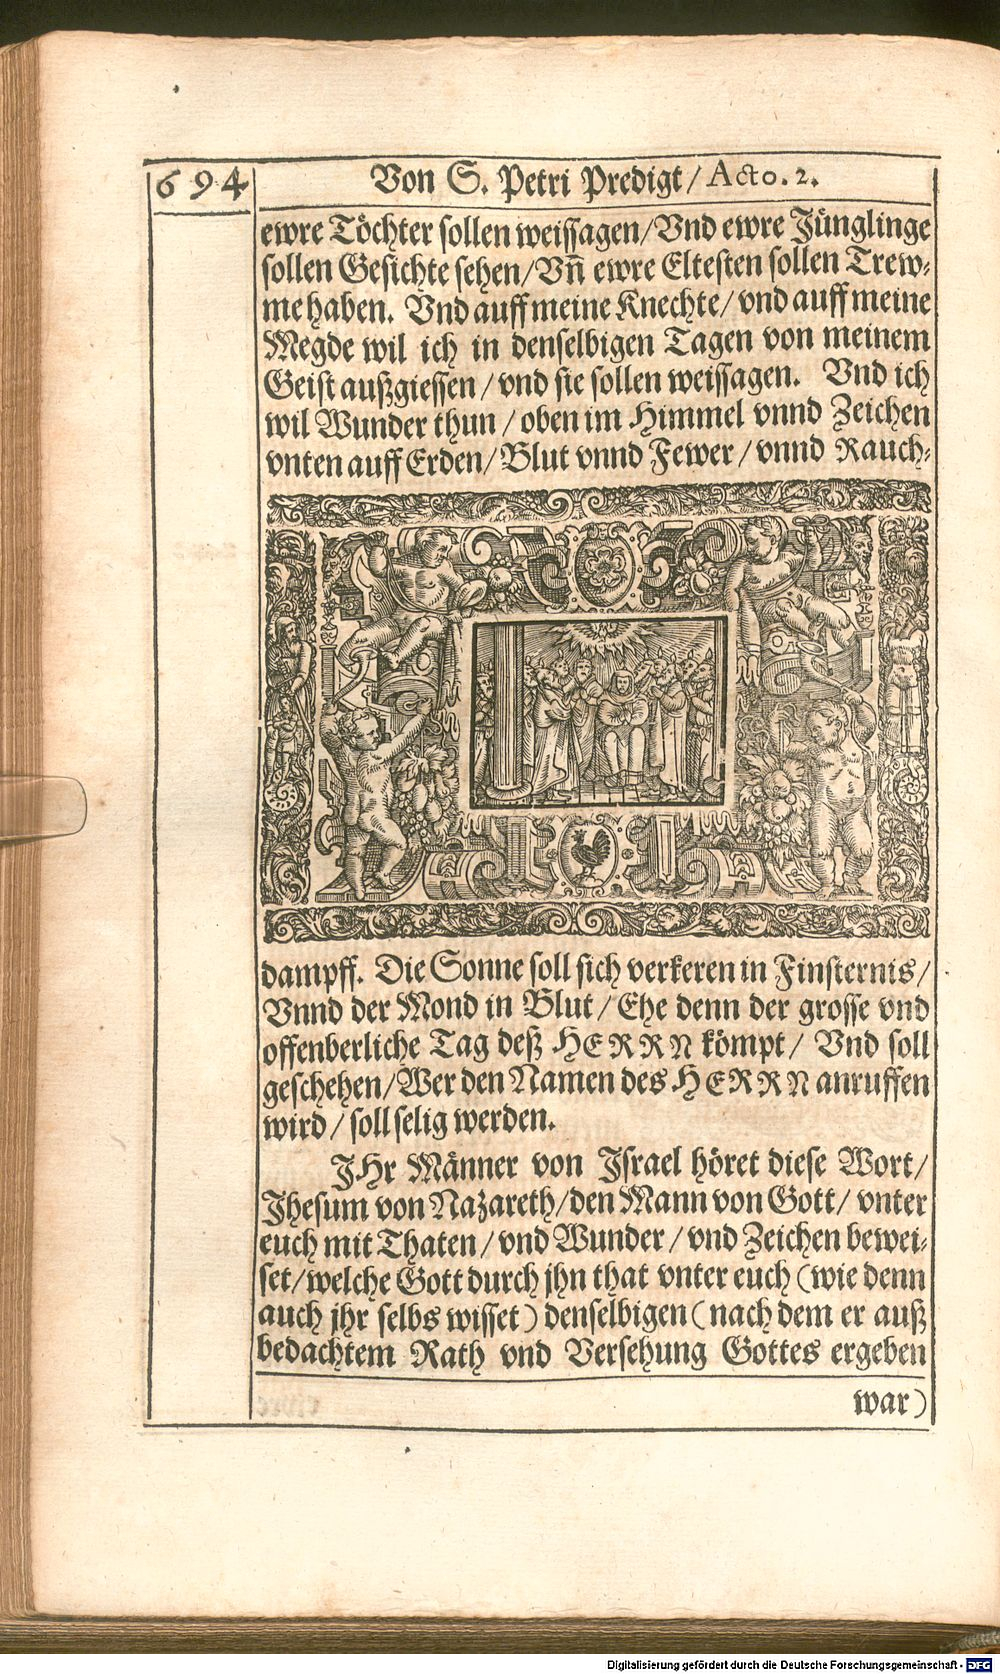 694
Von S. Petri Predigt / Acto. 2.
ewre Töchter sollen weissagen / Vnd ewre Jünglinge
sollen Gesichte sehen / Vn̄ ewre Eltesten sollen Trew-
me haben. Vnd auff meine Knechte / vnd auff meine
Megde wil ich in denselbigen Tagen von meinem
Geist außgiessen / vnd sie sollen weissagen. Vnd ich
wil Wunder thun / oben im Himmel vnnd Zeichen
vnten auff Erden / Blut vnnd Fewer / vnnd Rauch-
dampff. Die Sonne soll sich verkeren in Finsternis /
Vnnd der Mond in Blut / Ehe denn der grosse vnd
offenberliche Tag deß HERRN kömpt / Vnd soll
geschehen / Wer den Namen des HERRN anruffen
wird / soll selig werden.
JHr Männer von Jsrael höret diese Wort /
Jhesum von Nazareth / den Mann von Gott / vnter
euch mit Thaten / vnd Wunder / vnd Zeichen bewei-
set / welche Gott durch jhn that vnter euch (wie denn
auch jhr selbs wisset) denselbigen (nach dem er auß
bedachtem Rath vnd Versehung Gottes ergeben
war)
Digitalisierung gefördert durch die Deutsche Forschungsgemeinschaft - DFG